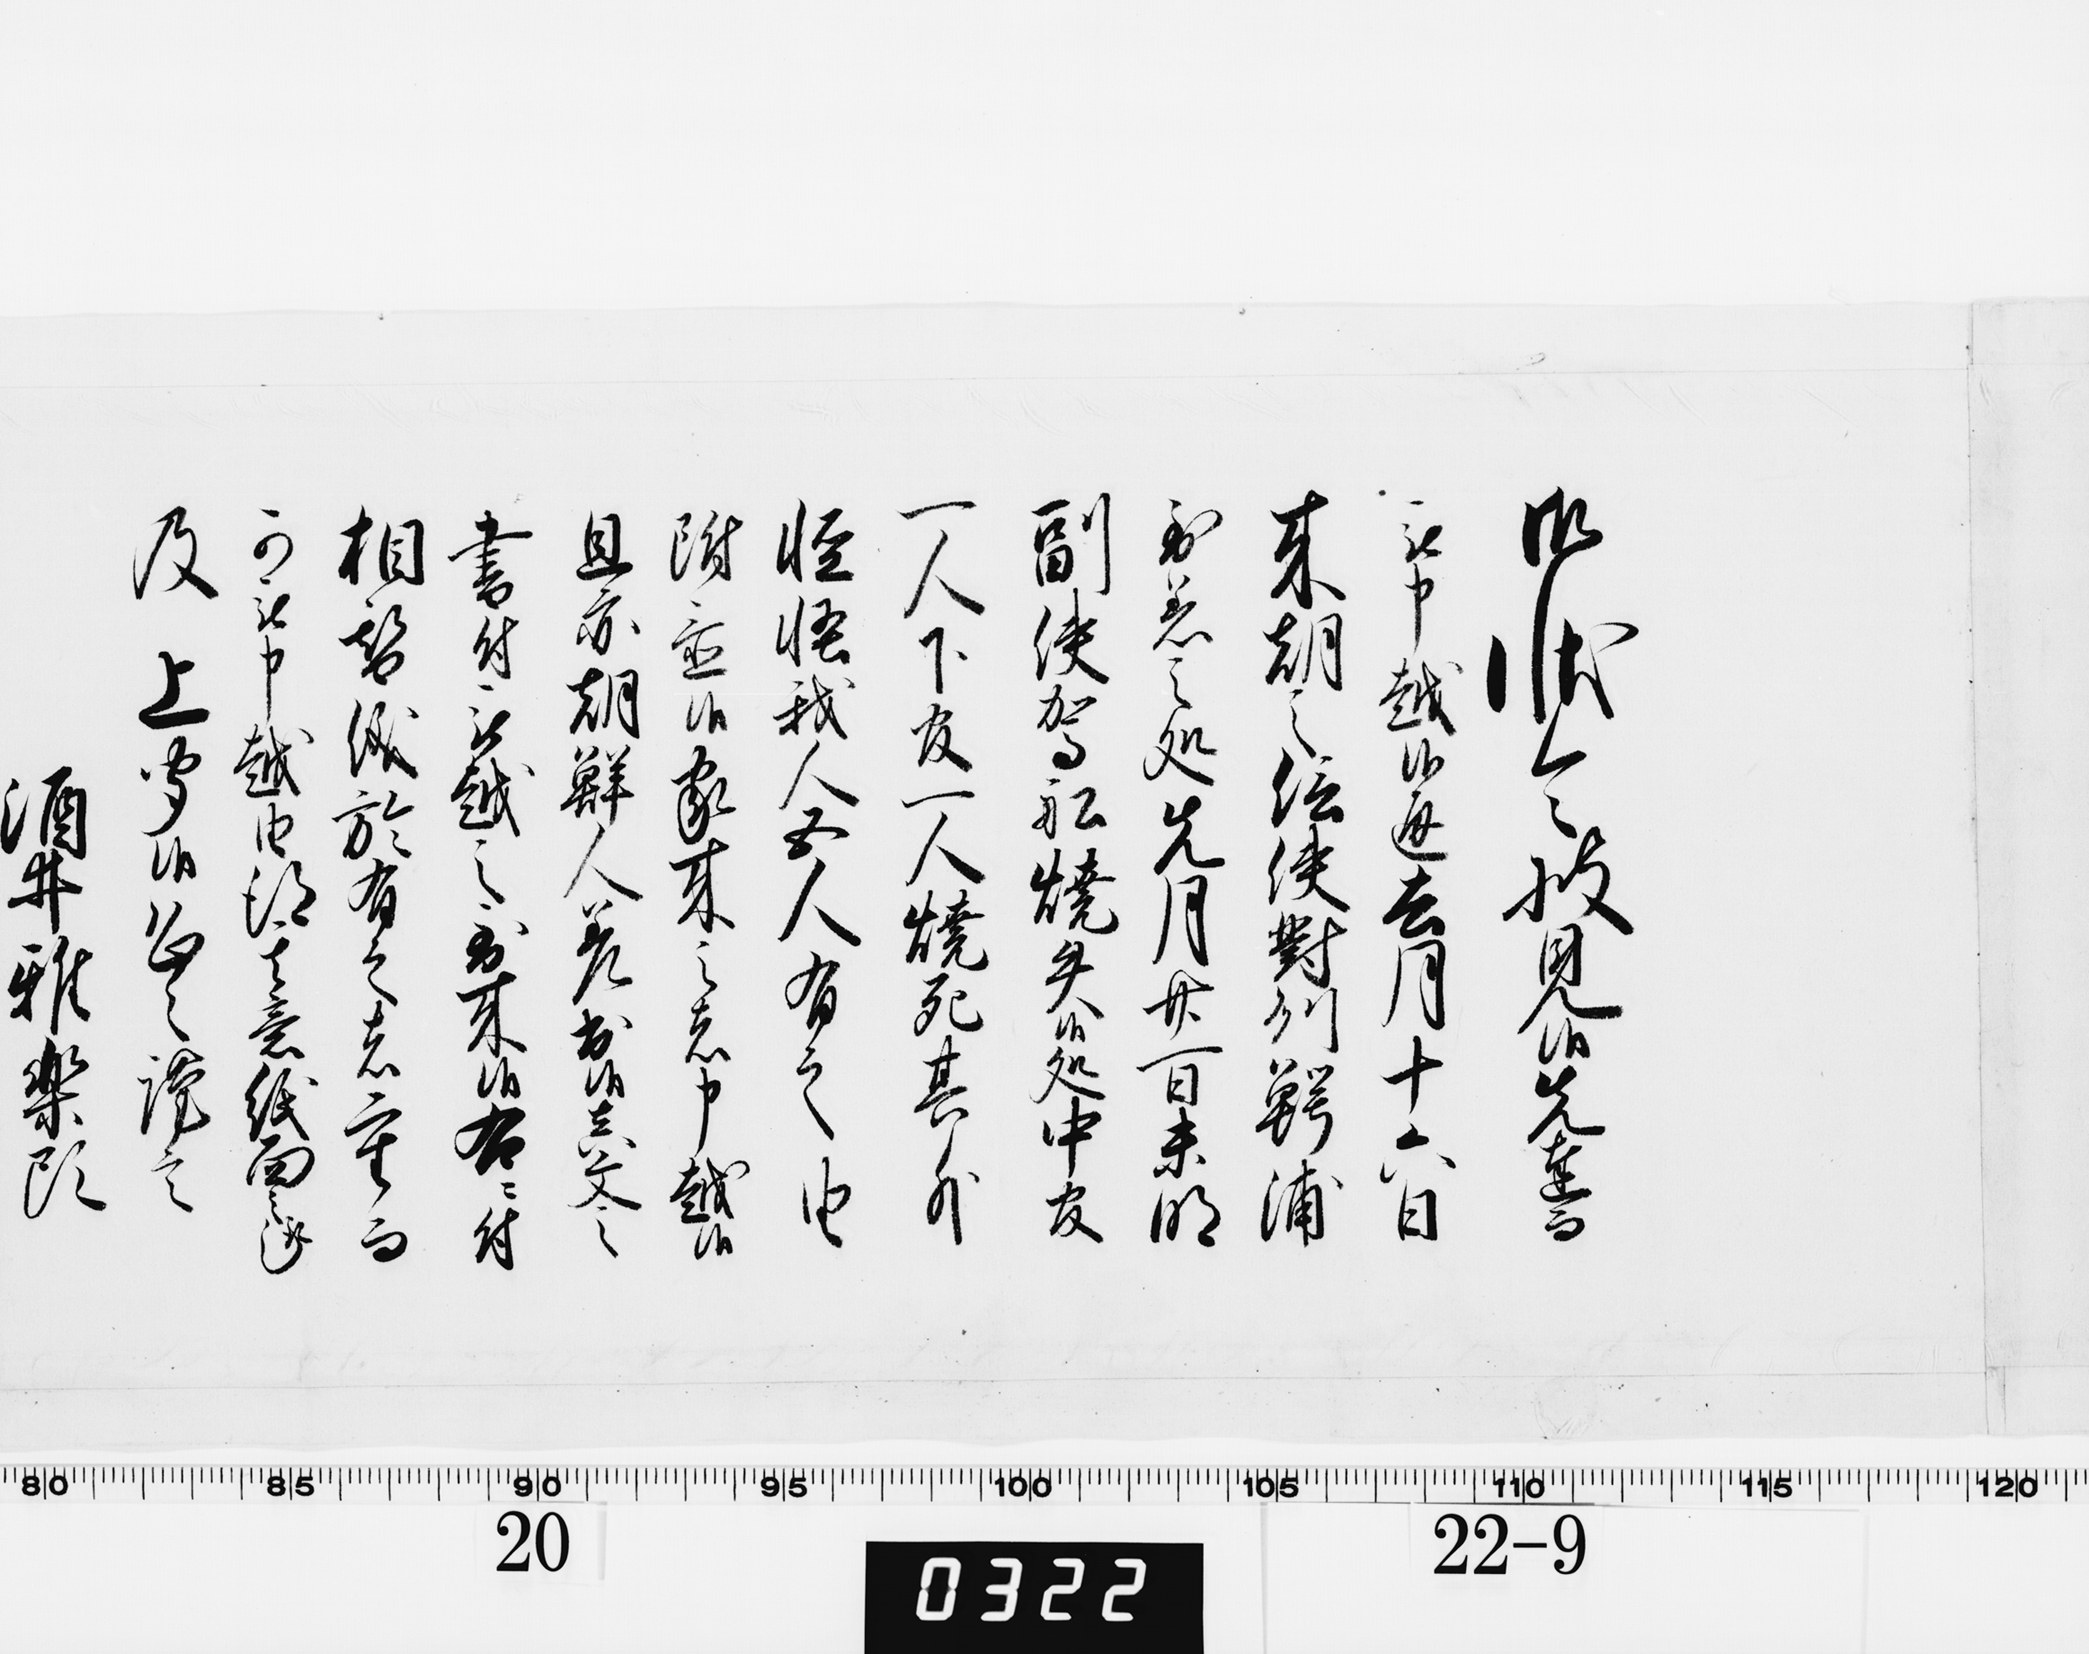 御状令披見候先書
被申越候通去月十六日
来朝之信使對州鰐浦
到着之処先月廿一日未明
副使駕船焼失候処中官
一人下官一人焼死其外
怪悟我人五人有之由
附置候家来之者申越候
且亦朝鮮人差出候真文之
書付被越之到来候右書付
相認候於有之者重而
可被申越由得其意紙面之趣
及 上聞候恐々謹言
酒井雅楽頭
80 85 90 95 100 105 110 115 120
20
22-9
0322